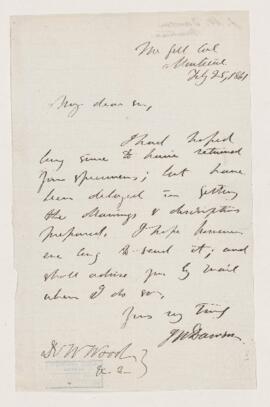 McGill Col
Montreal
Feby 25, 1861
My dear sir,
I had hoped
long since to have returned
your specimens; but have
been delayed in getting
the drawings & descriptions
prepared. I hope however
ere long to send it; and
shall advise you by mail
when I do so,
Yours very truly
J W Dawson
Dr W Wood
&c. &.